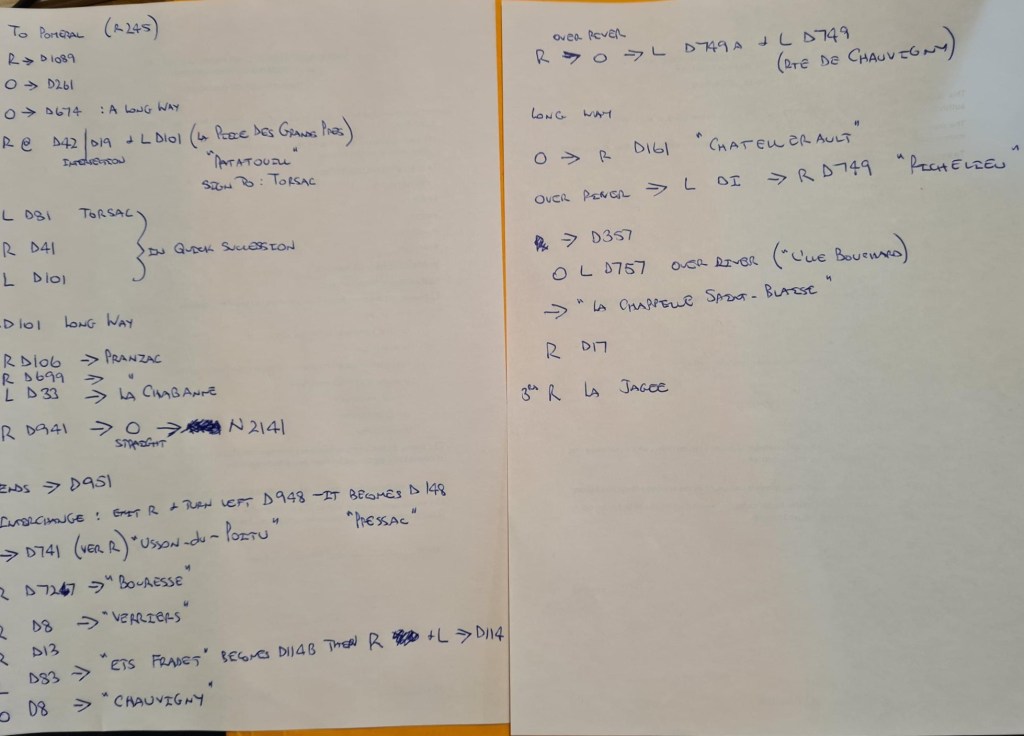 TO POMERAL (R245)
R → D1089
O → D261
O → D674 : A LONG WAY
R @ D42/D19 + L D101 (LA PIÈCE DES GRANDS PRÉS)
INTERSECTION "PATATOUILL"
SIGN TO : TORSAC
L D81 TORSAC
R D41
L D101
IN QUICK SUCCESSION
D101 LONG WAY
R D106 → PRANZAC
R D699 → "
L D33 → LA CHABANNE
R D941 → O → N2141
STRAIGHT
ENDS → D951
INTERCHANGE : EXIT R + TURN LEFT D948 - IT BECOMES D148
"PRESSAC"
→ D741 (VER R) "USSON-DU-POITU"
R D727 → "BOURESSE"
R D8 → "VERRIERS"
R D13
L D83 → "ETS FRADET" BECOMES D114B THEN R + L → D114
O D8 → "CHAUVIGNY"
OVER RIVER
R → O → L D749A + L D749
(RTE DE CHAUVIGNY)
LONG WAY
O → R D161 "CHATELLERAULT"
OVER RIVER → L D1 → R D749 "RICHELIEU"
R → D357
O L D757 OVER RIVER ("L'ILE BOUCHARD)
→ "LA CHAPPELLE SAINT-BLAISE"
R D17
3RD R LA JAGEE